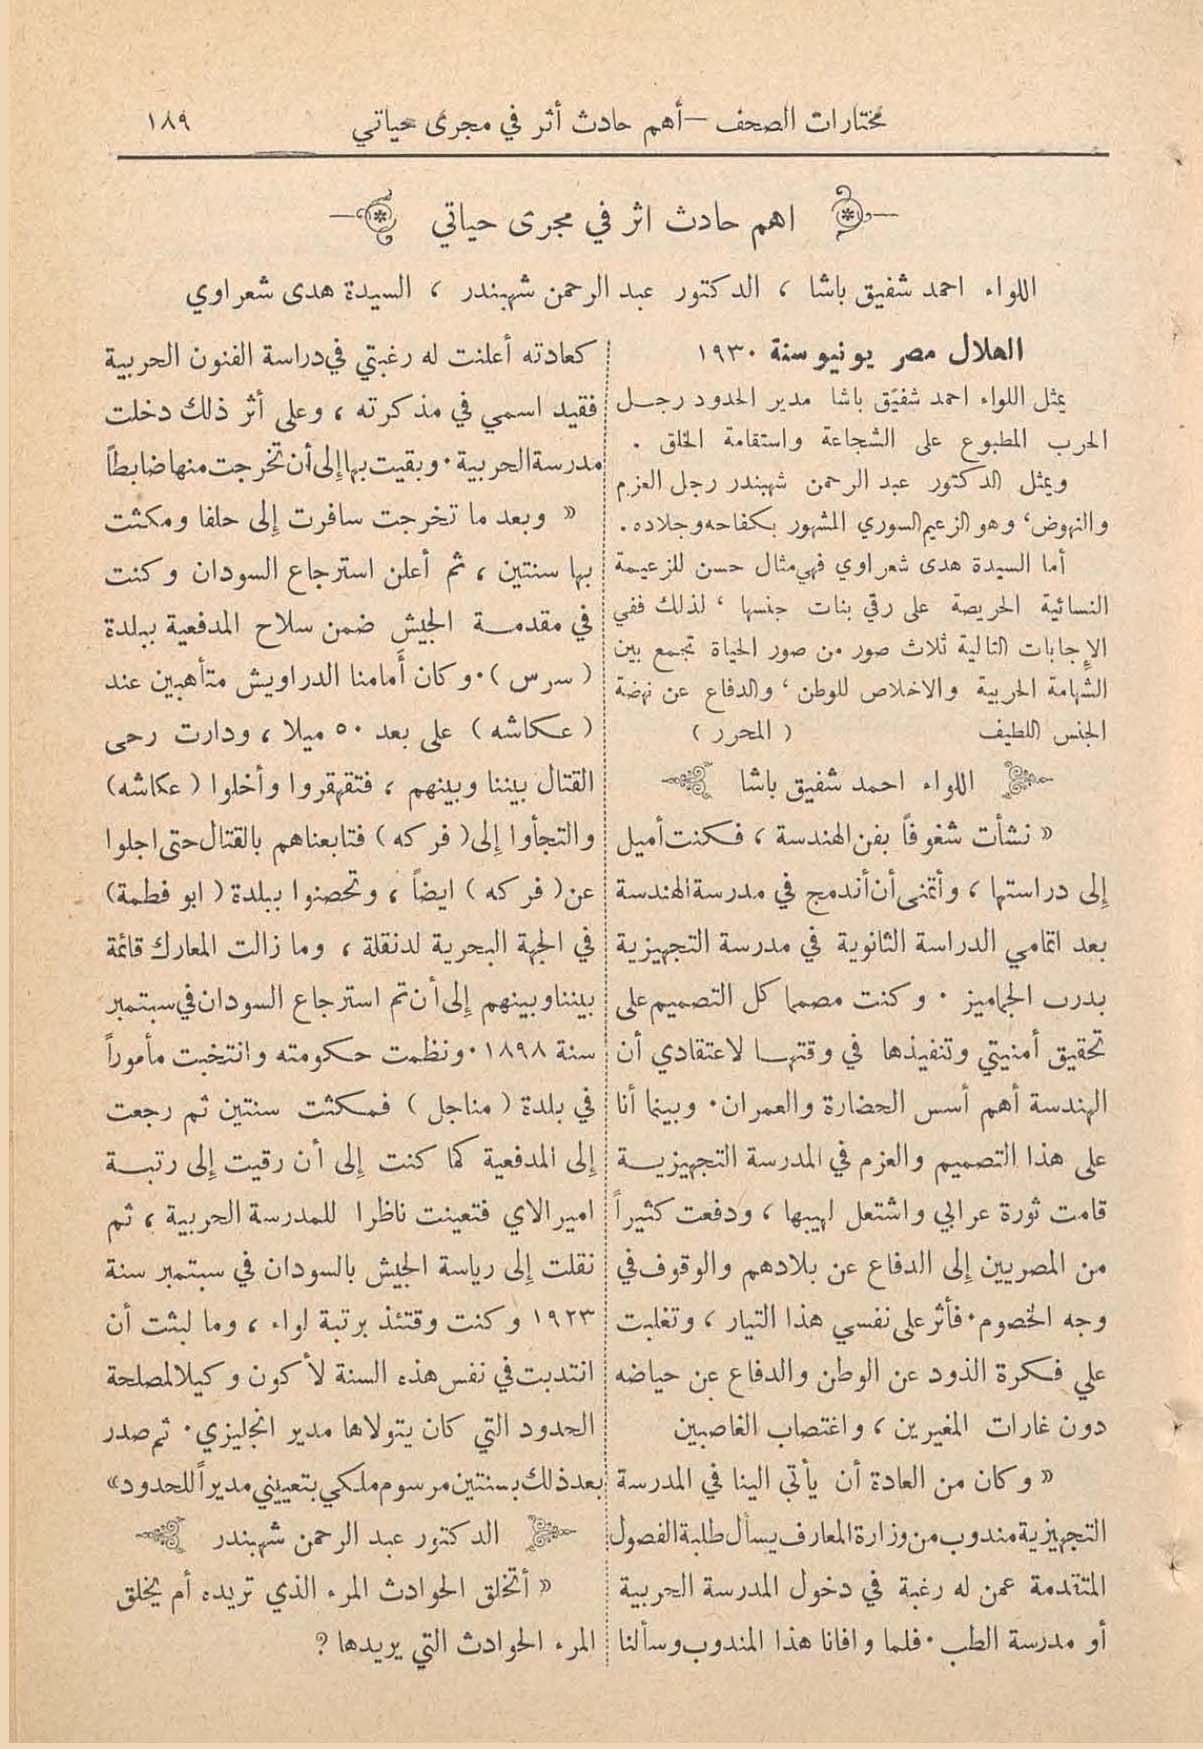 مختارات الصحف — أهم حادث أثر في مجرى حياتي ١٨٩
اهم حادث اثر في مجرى حياتي
اللواء احمد شفيق باشا ، الدكتور عبد الرحمن شهبندر ، السيدة هدى شعراوي
الهلال مصر يونيو سنة ١٩٣٠
يمثل اللواء احمد شفيق باشا مدير الحدود رجل
الحرب المطبوع على الشجاعة واستقامة الخلق .
ويمثل الدكتور عبد الرحمن شهبندر رجل العزم
والنهوض، وهو الزعيم السوري المشهور بكفاحه وجلاده.
أما السيدة هدى شعراوي فهي مثال حسن للزعيمة
النسائية الحريصة على رقي بنات جنسها ، لذلك ففي
الإجابات التالية ثلاث صور من صور الحياة تجمع بين
الشهامة الحربية والاخلاص للوطن ، والدفاع عن نهضة
الجنس اللطيف ( المحرر )
اللواء احمد شفيق باشا
« نشأت شغوفاً بفن الهندسة ، فكنت أميل
إلى دراستها ، وأتمنى أن أندمج في مدرسة الهندسة
بعد اتمامي الدراسة الثانوية في مدرسة التجهيزية
بدرب الجماميز . وكنت مصمما كل التصميم على
تحقيق أمنيتي وتنفيذها في وقتها لاعتقادي أن
الهندسة أهم أسس الحضارة والعمران. وبينما أنا
على هذا التصميم والعزم في المدرسة التجهيزية
قامت ثورة عرابي واشتعل لهيبها ، ودفعت كثيراً
من المصريين إلى الدفاع عن بلادهم والوقوف في
وجه الخصوم. فأثر على نفسي هذا التيار ، وتغلبت
علي فكرة الذود عن الوطن والدفاع عن حياضه
دون غارات المغيرين ، واغتصاب الغاصبين
« وكان من العادة أن يأتي الينا في المدرسة
التجهيزية مندوب من وزارة المعارف يسأل طلبة الفصول
المتقدمة عمن له رغبة في دخول المدرسة الحربية
أو مدرسة الطب . فلما وافانا هذا المندوب وسألنا
كعادته أعلنت له رغبتي في دراسة الفنون الحربية
فقيد اسمي في مذكرته ، وعلى أثر ذلك دخلت
مدرسة الحربية . وبقيت بها إلى أن تخرجت منها ضابطاً
« وبعد ما تخرجت سافرت إلى حلفا ومكثت
بها سنتين ، ثم أعلن استرجاع السودان وكنت
في مقدمة الجيش ضمن سلاح المدفعية ببلدة
( سرس ) . وكان أمامنا الدراويش متأهبين عند
( عكاشه ) على بعد ٥٠ ميلا ، ودارت رحى
القتال بيننا وبينهم ، فتقهقروا وأخلوا ( عكاشه )
والتجأوا إلى ( فركه ) فتابعناهم بالقتال حتى اجلوا
عن ( فركه ) ايضاً ، وتحصنوا ببلدة ( ابو فطمة )
في الجهة البحرية لدنقلة ، وما زالت المعارك قائمة
بيننا وبينهم إلى أن تم استرجاع السودان في سبتمبر
سنة ١٨٩٨ . ونظمت حكومته وانتخبت مأموراً
في بلدة ( مناجل ) فمكثت سنتين ثم رجعت
إلى المدفعية كما كنت إلى أن رقيت إلى رتبة
امير الاي فتعينت ناظرا للمدرسة الحربية ، ثم
نقلت إلى رياسة الجيش بالسودان في سبتمبر سنة
١٩٢٣ وكنت وقتئذ برتبة لواء ، وما لبثت أن
انتدبت في نفس هذه السنة لأكون وكيلا لمصلحة
الحدود التي كان يتولاها مدير انجليزي . ثم صدر
بعد ذلك بسنتين مرسوم ملكي بتعييني مديراً للحدود »
الدكتور عبد الرحمن شهبندر
« أتخلق الحوادث المرء الذي تريده أم يخلق
المرء الحوادث التي يريدها ؟